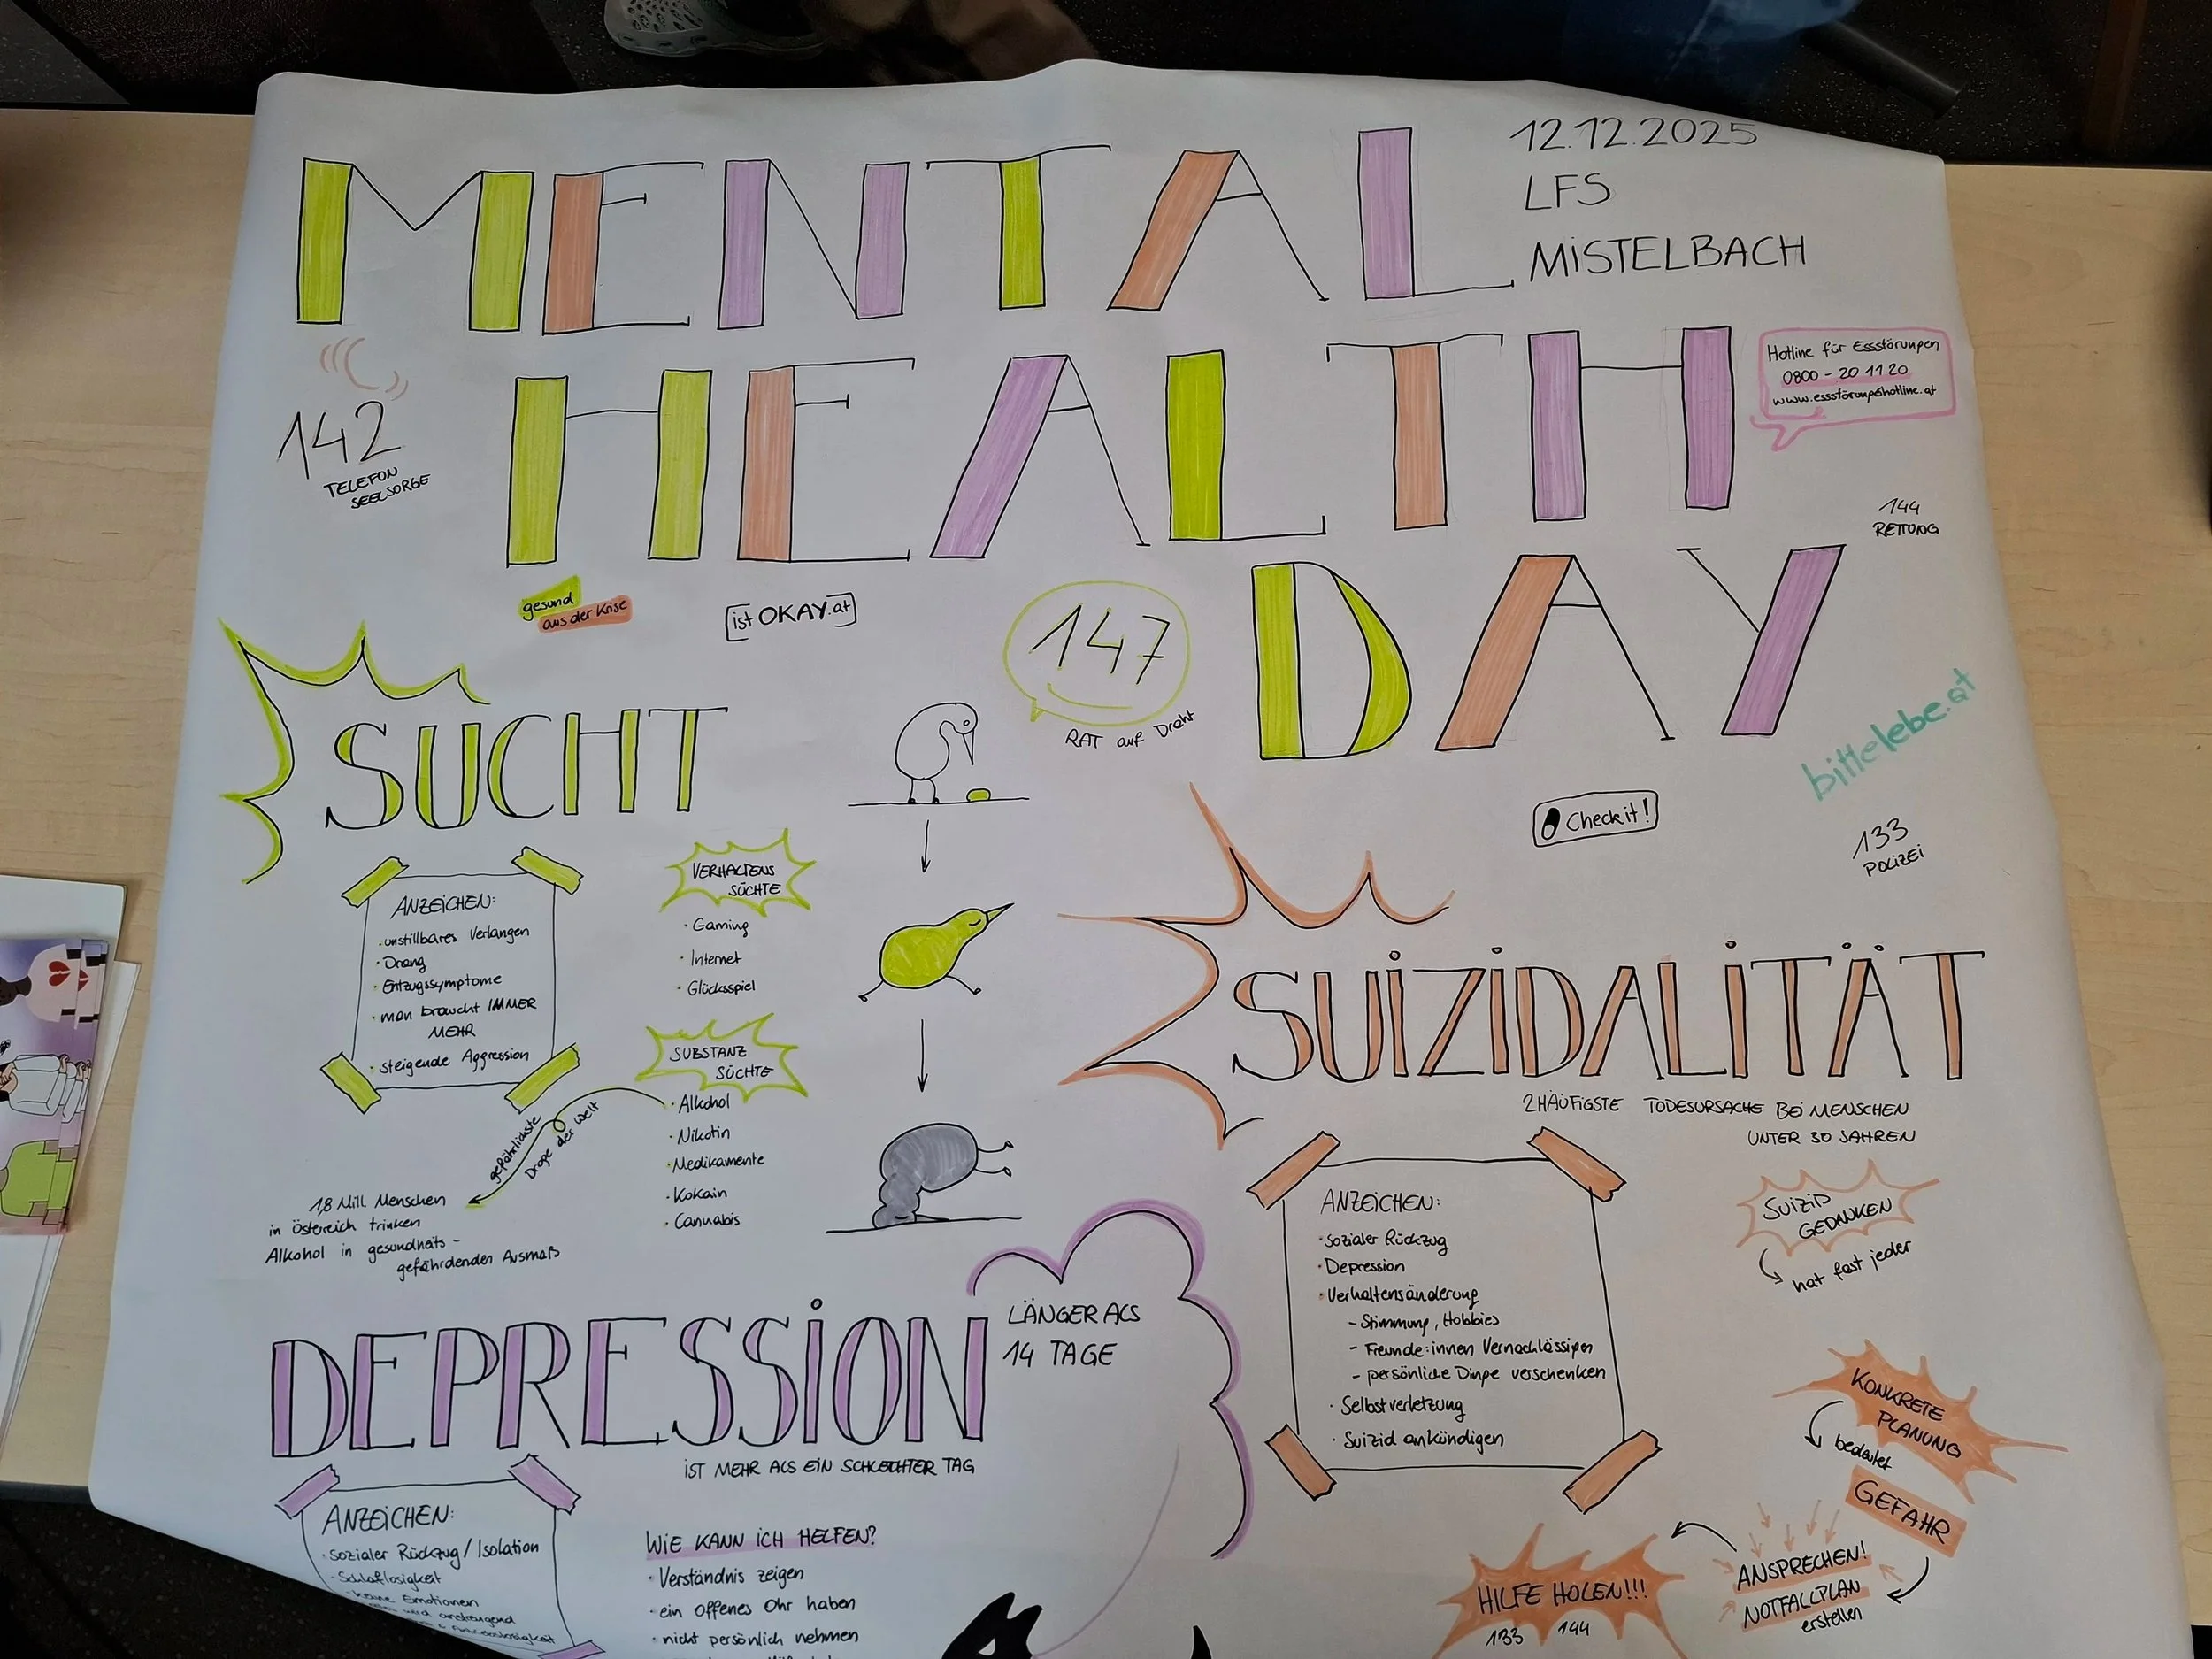 MENTAL
HEALTH
DAY
12.12.2025
LFS
MiSTELBACH
142
TELEFON
SEELSORGE
Hotline für Essstörungen
0800 - 20 11 20
www.essstörungshotline.at
144
RETTUNG
gesund
aus der Krise
ist OKAY.at
147
RAT auf Draht
bittelebe.at
Check it!
133
POLiZEi
SUCHT
ANZEiCHEN:
· unstillbares Verlangen
· Drang
· Entzugssymptome
· man braucht IMMER
MEHR
· steigende Aggression
VERHALTENS
SÜCHTE
· Gaming
· Internet
· Glücksspiel
SUBSTANZ
SÜCHTE
· Alkohol
· Nikotin
· Medikamente
· Kokain
· Cannabis
gefährlichste
Droge der Welt
1,8 Mill Menschen
in Östereich trinken
Alkohol in gesundheits-
gefährdenden Ausmaß
SUiZiDALiTÄT
2 HÄUFiGSTE TODESURSACHE BEi MENSCHEN
UNTER 30 JAHREN
ANZEiCHEN:
· Sozialer Rückzug
· Depression
· Verhaltensänderung
- Stimmung, Hobbies
- Freunde:innen Vernachlässigen
- persönliche Dinge verschenken
· Selbstverletzung
· Suizid ankündigen
SUiZiD
GEDANKEN
hat fast jeder
KONKRETE
PLANUNG
bedeutet
GEFAHR
ANSPRECHEN!
NOTFALLPLAN
erstellen
HiLFE HOLEN!!!
133 144
DEPRESSiON
LÄNGER ALS
14 TAGE
iST MEHR ALS EiN SCHLECHTER TAG
ANZEiCHEN:
· Sozialer Rückzug / Isolation
· Schlaflosigkeit
· keine Emotionen
wird anstrengend
WiE KANN iCH HELFEN?
· Verständnis zeigen
· ein Offenes Ohr haben
· nicht persönlich nehmen